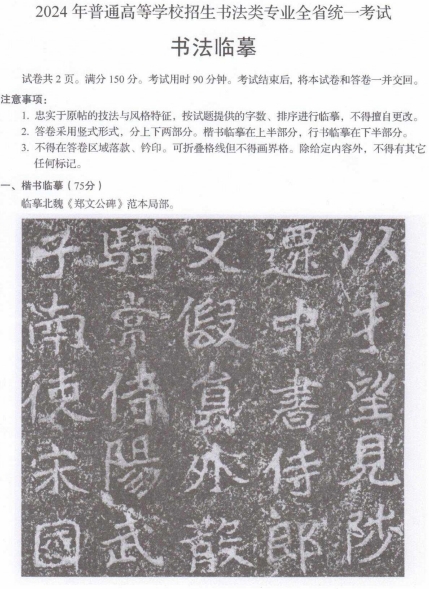 2024 年普通高等学校招生书法类专业全省统一考试
书法临摹
试卷共 2 页。满分 150 分。考试用时 90 分钟。考试结束后, 将本试卷和答卷一并交回。
注意事项：
1. 忠实于原帖的技法与风格特征，按试题提供的字数、排序进行临摹，不得擅自更改。
2. 答卷采用竖式形式，分上下两部分。楷书临摹在上半部分，行书临摹在下半部分。
3. 不得在答卷区域落款、钤印。可折叠格线但不得画界格。除给定内容外，不得有其它
任何标记。
一、楷书临摹（75分）
临摹北魏《郑文公碑》范本局部。
以才望見陟
遷中書侍郎
又假員外散
騎常侍陽武
子南使宋國